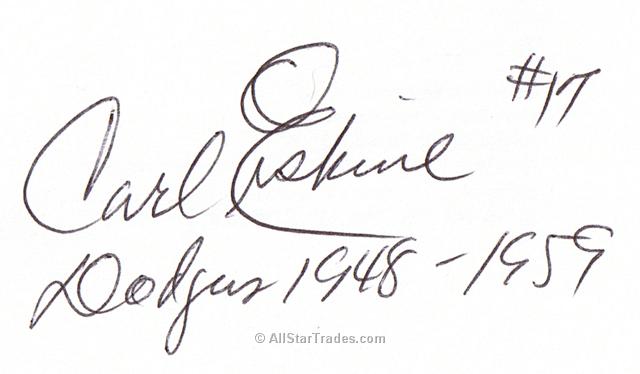 Carl Erskine #17
Dodgers 1948-1959
© AllStarTrades.com